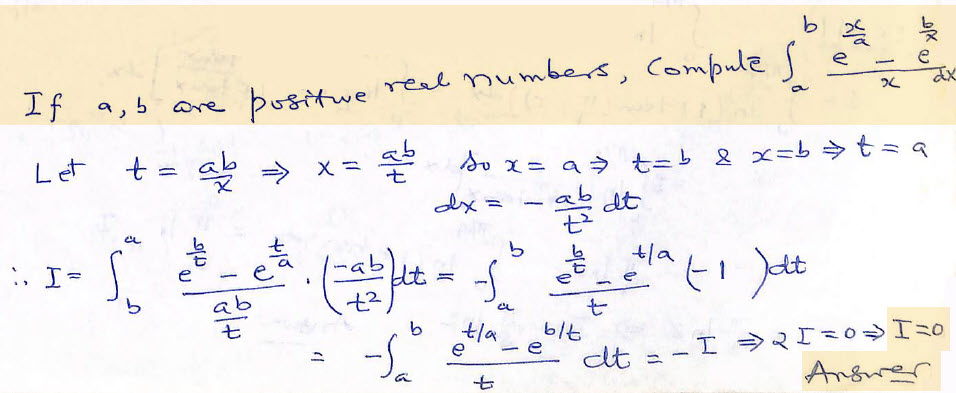 If a, b are positive real numbers, compute ∫_a^b (e^{x/a} - e^{b/x})/x dx
Let t = ab/x ⇒ x = ab/t So x = a ⇒ t = b & x = b ⇒ t = a
dx = - ab/t² dt
∴ I = ∫_b^a (e^{b/t} - e^{t/a})/(ab/t) · (-ab/t²) dt = -∫_a^b (e^{b/t} - e^{t/a})/t (-1) dt
= -∫_a^b (e^{t/a} - e^{b/t})/t dt = - I ⇒ 2I = 0 ⇒ I = 0
Answer